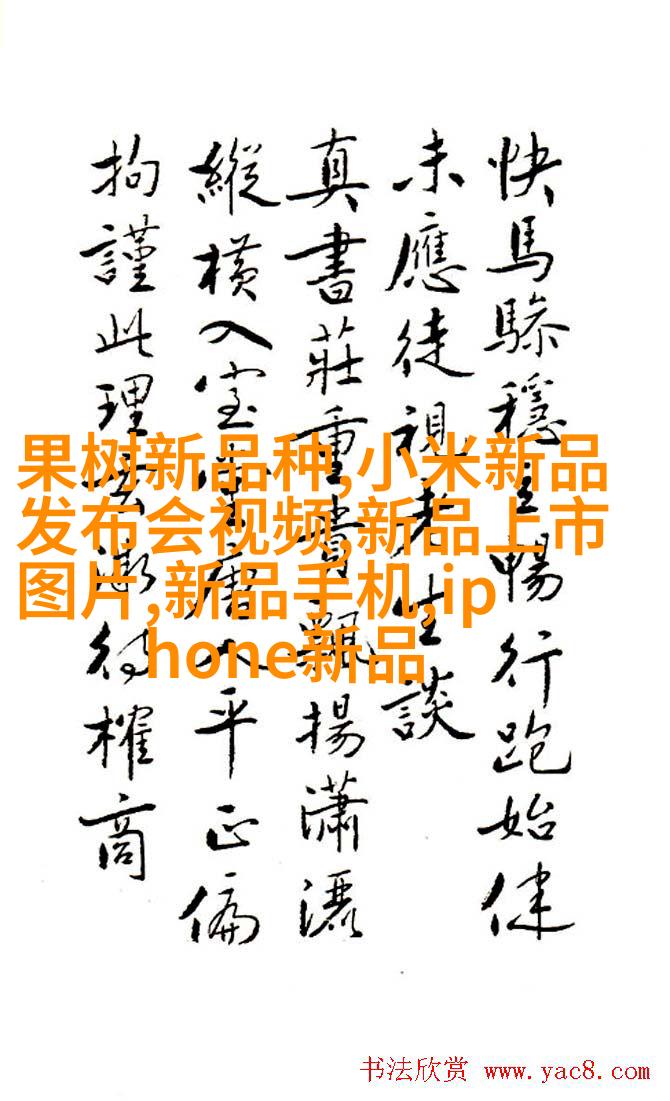 快馬穩暢行跑始健
未應徒視老生談
真書莊重飄揚瀟灑
縱橫入室唐人平正偏
拘謹此理待榷商
果树新品种,小米新品
发布会视频,新品上市
图片,新品手机,ip
hone新品
书法欣赏 www.yac8.com